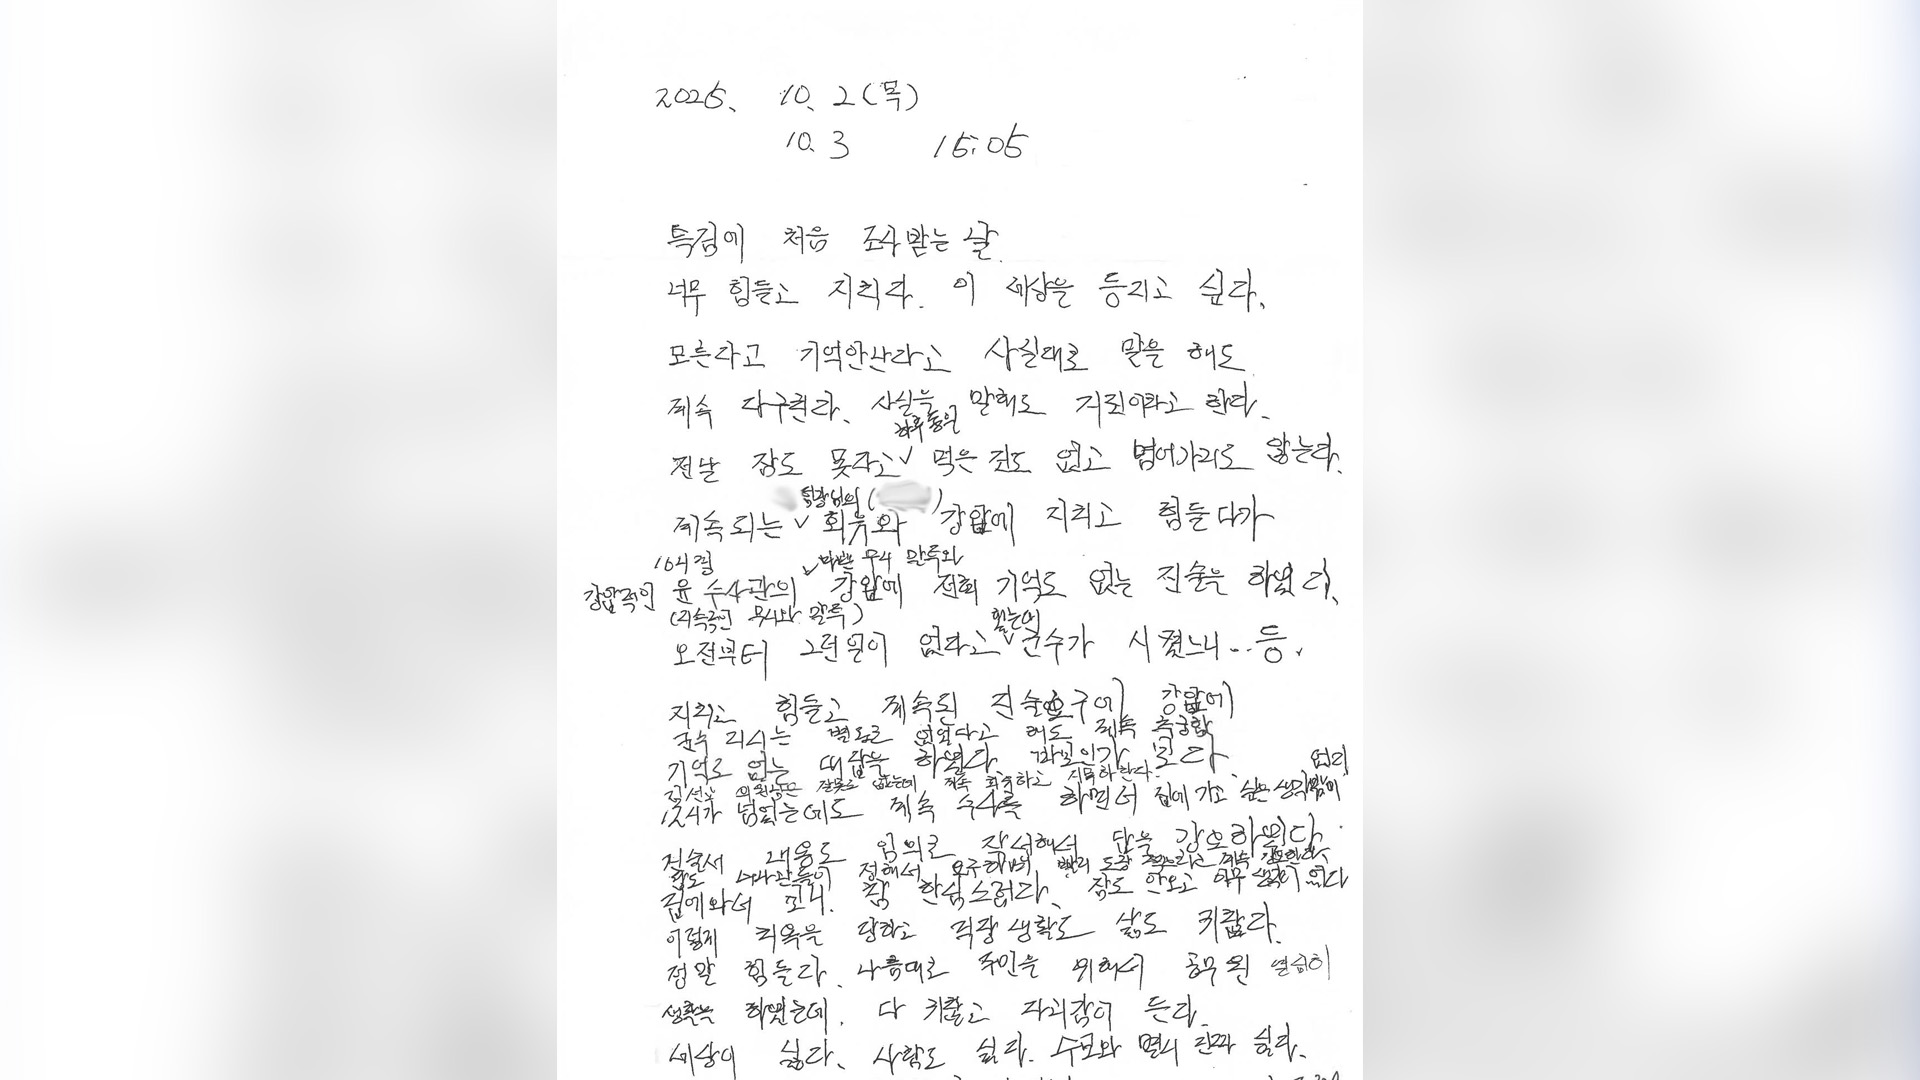 2025. 10. 2(목)
10. 3 15:05
특검에 처음 조사받는 날.
너무 힘들고 지치다. 이 세상을 등지고 싶다.
모른다고 기억안난다고 사실대로 말을 해도
계속 다구친다. 사실을 말해도 거짓이라고 한다.
하루종일
전날 잠도 못자고 ✓ 먹은 것도 없고 넘어가지도 않는다.
팀장님의 ( )
계속되는 ✓ 회유와 강압에 지치고 힘들다가
10시쯤 ✓ 무시 말투와
강압적인 윤 수사관의 강압에 전혀 기억도 없는 진술을 하였다.
(지속적인 무시와 말투)
오전부터 그런일이 없다고 ✓ 군수가 시켰느니... 등.
지치고 힘들고 계속된 진술요구에 강압에
군수 지시는 별도로 없었다고 해도 계속 추궁함
기억도 없는 대답을 하였다. 바보인가 보다.
김선교 의원님은 잘못도 없는데 계속 회유하고 지목하란다. 없다
12시가 넘었는데도 계속 수사를 하면서 집에 가고 싶은 생각밖에
진술서 내용도 임의로 작성해서 답을 강요하였다.
답도 수사관들이 정해서 요구하며 빨리 도장 찍으라고 계속 강요한다.
집에와서 보니. 참 한심스럽다. 잠도 안오고 아무 생각이 없다
이렇게 치욕을 당하고 직장생활도 삶도 귀찮다.
정말 힘들다. 나름대로 주민을 위해서 공무원 열심히
생활을 하였는데. 다 귀찮고 자괴감이 든다.
세상이 싫다. 사람도 싫다. 수모와 멸시 진짜 싫다.